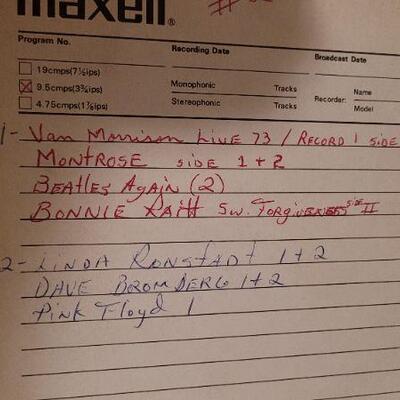 maxell®
Program No. Recording Date Broadcast Date
19cmps(7½ips)
9.5cmps(3¾ips) Monophonic Tracks Recorder: Name
4.75cmps(1⅞ips) Stereophonic Tracks Model
1- Van Morrison Live 73 / Record 1 side
Montrose side 1+2
Beatles Again (2)
Bonnie Raitt Sw. Forgiveness side II
2- Linda Ronstadt 1+2
Dave Bromberg 1+2
Pink Floyd 1